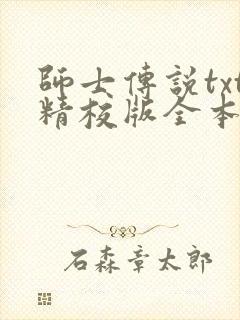 師士傳説txt
精校版全本
石森章太郎